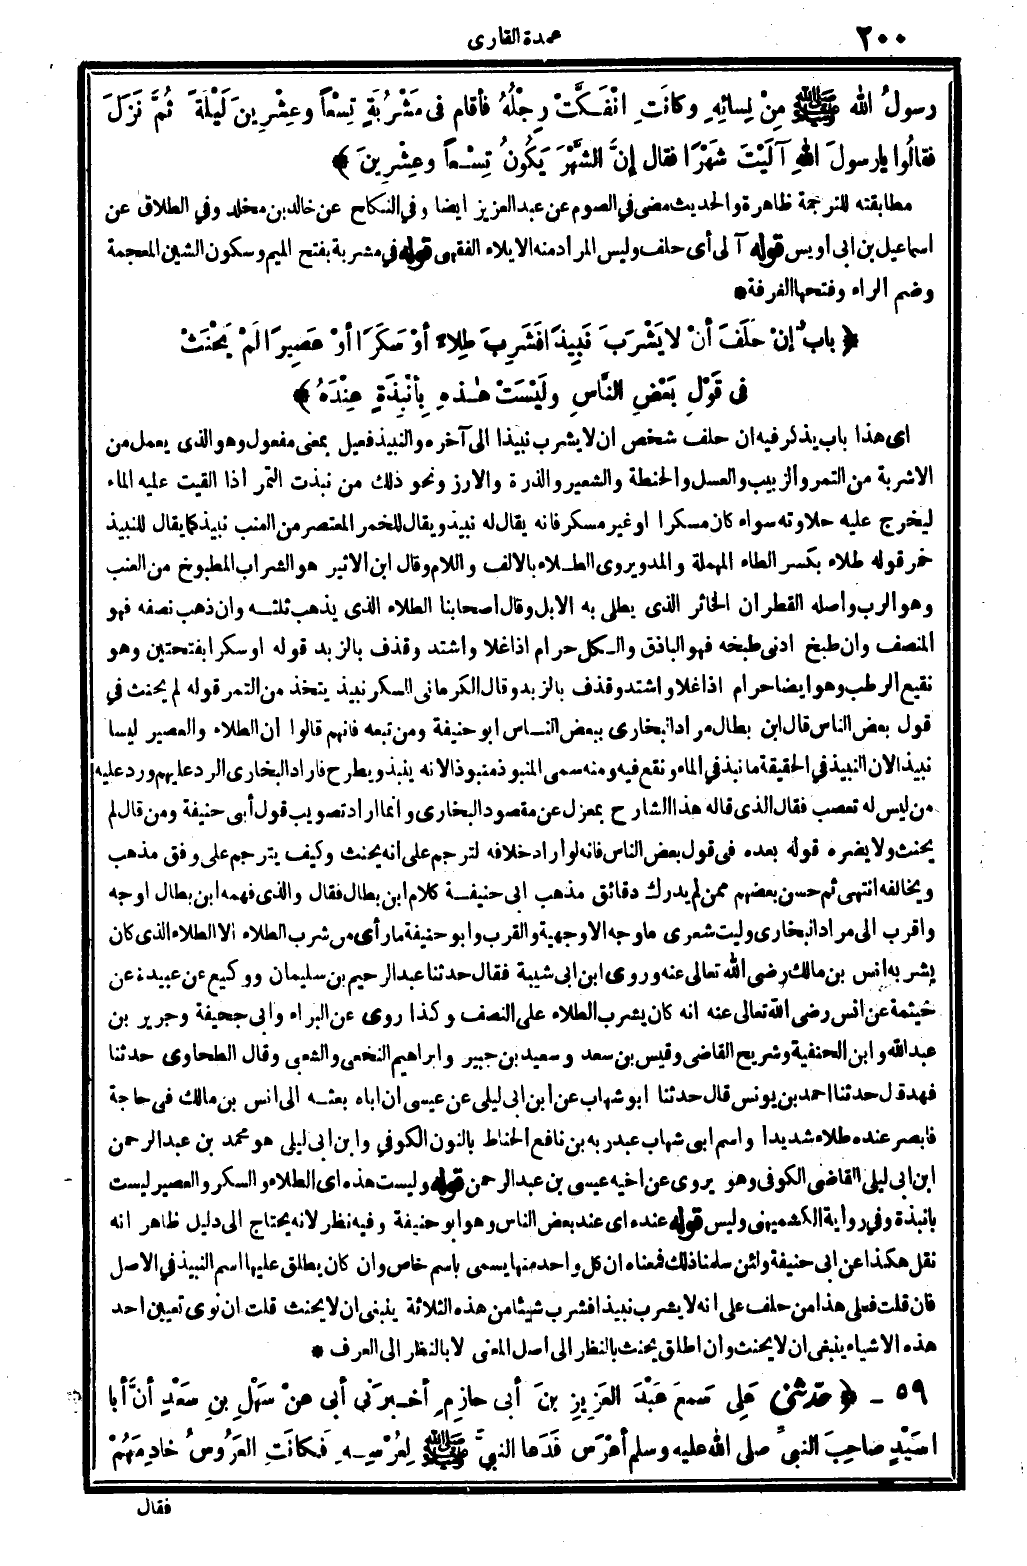 ٢٠٠
عمدة القارى
رسولُ الله ﷺ مِنْ نِسائِهِ وكانَتِ انْفَكَّتْ رِجْلُهُ فأقام فى مَشْرُبَةٍ تِسْعاً وعِشْرِينَ لَيْلَةً ثُمَّ نَزَلَ
فقالُوا يارسولَ اللهِ آلَيْتَ شَهْرًا فقال إنَّ الشَّهْرَ يَكُونُ تِسْعاً وعِشْرِينَ ﴾
مطابقته للترجمة ظاهرة والحديث مضى في الصوم عن عبدالعزيز ايضا وفي النكاح عن خالد بن مخلد وفي الطلاق عن
اسماعيل بن ابى اويس قوله آلى أى حلف وليس المراد منه الايلاء الفقهى قوله في مشربة بفتح الميم وسكون الشين المعجمة
وضم الراء وفتحها الغرفة *
﴿ بابٌ إنْ حَلَفَ أنْ لا يَشْرَبَ نَبِيذًا فَشَرِبَ طِلاءً أوْ سَكَرًا أوْ عَصِيرًا لَمْ يَحْنَثْ
فى قَوْلِ بَعْضِ النَّاسِ ولَيْسَتْ هٰذِهِ بِأنْبِذَةٍ عِنْدَهُ ﴾
اى هذا باب يذكر فيه ان حلف شخص ان لا يشرب نبيذا الى آخره والنبيذ فعيل بمعنى مفعول وهو الذى يعمل من
الاشربة من التمر والزبيب والعسل والحنطة والشعير والذرة والارز ونحو ذلك من نبذت التمر اذا القيت عليه الماء
ليخرج عليه حلاوته سواء كان مسكرا او غير مسكر فانه يقال له نبيذ ويقال للخمر المعتصر من العنب نبيذ كما يقال للنبيذ
خمر قوله طلاء بكسر الطاء المهملة والمد ويروى الطلاء بالالف واللام وقال ابن الاثير هو الشراب المطبوخ من العنب
وهو الرب واصله القطران الخاثر الذى يطلى به الابل وقال اصحابنا الطلاء الذى يذهب ثلثه وان ذهب نصفه فهو
المنصف وان طبخ ادنى طبخه فهو الباذق والكل حرام اذا غلا واشتد وقذف بالزبد قوله او سكرا بفتحتين وهو
نقيع الرطب وهو ايضا حرام اذا غلا واشتد وقذف بالزبد وقال الكرمانى السكر نبيذ يتخذ من التمر قوله لم يحنث في
قول بعض الناس قال ابن بطال مراد البخارى ببعض الناس ابو حنيفة ومن تبعه فانهم قالوا ان الطلاء والعصير ليسا
نبيذا لان النبيذ في الحقيقة ما نبذ في الماء ونقع فيه ومنه سمى المنبوذ منبوذا لانه ينبذ ويطرح فاراد البخارى الرد عليهم ورد عليه
من ليس له تعصب فقال الذى قاله هذا الشارح بمعزل عن مقصود البخارى وانما اراد تصويب قول أبى حنيفة ومن قال لم
يحنث ولا يضره قوله بعده فى قول بعض الناس فانه لو اراد خلافه لترجم على انه يحنث وكيف يترجم على وفق مذهب
ويخالفه انتهى ثم حسن بعضهم ممن لم يدرك دقائق مذهب ابى حنيفة كلام ابن بطال فقال والذى فهمه ابن بطال اوجه
واقرب الى مراد البخارى وليت شعرى ما وجه الاوجهية والقرب وابو حنيفة ما رأى من شرب الطلاء الا الطلاء الذى كان
يشربه انس بن مالك رضى الله تعالى عنه وروى ابن ابى شيبة فقال حدثنا عبد الرحيم بن سليمان ووكيع عن عبيدة عن
خيثمة عن انس رضى الله تعالى عنه انه كان يشرب الطلاء على النصف وكذا روى عن البراء وابى جحيفة وجرير بن
عبدالله وابن الحنفية وشريح القاضى وقيس بن سعد وسعيد بن جبير وابراهيم النخعى والشعبى وقال الطحاوى حدثنا
فهد قال حدثنا احمد بن يونس قال حدثنا ابو شهاب عن ابن ابى ليلى عن عيسى ان اباه بعثه الى انس بن مالك فى حاجة
فابصر عنده طلاء شديدا واسم ابى شهاب عبد ربه بن نافع الحناط بالنون الكوفي وابن ابى ليلى هو محمد بن عبد الرحمن
ابن ابى ليلى القاضى الكوفى وهو يروى عن اخيه عيسى بن عبد الرحمن قوله وليست هذه اى الطلاء والسكر والعصير ليست
بانبذة وفي رواية الكشميهنى وليس قوله عنده اى عند بعض الناس وهو ابو حنيفة وفيه نظر لانه يحتاج الى دليل ظاهر انه
نقل هكذا عن ابى حنيفة ولئن سلمنا ذلك فمعناه ان كل واحد منها يسمى باسم خاص وان كان يطلق عليها اسم النبيذ في الاصل
فان قلت فعلى هذا من حلف على انه لا يشرب نبيذا فشرب شيئا من هذه الثلاثة ينبغى ان لا يحنث قلت ان نوى تعيين احد
هذه الاشياء ينبغى ان لا يحنث وان اطلق يحنث بالنظر الى اصل المعنى لا بالنظر الى العرف *
٥٩ - ﴿ حدّثنى عَلِى سَمِعَ عَبْدَ العَزِيزِ بنَ أبى حازِمٍ أخبرَنى أبى عنْ سَهْلِ بنِ سَعْدٍ أنَّ أبا
اسَيْدٍ صاحِبَ النبىِّ صلى الله عليه وسلم أعْرَسَ فَدَعا النبىَّ ﷺ لِعُرْسِهِ فَكانَتِ العَرُوسُ خادِمَهُمْ
فقال